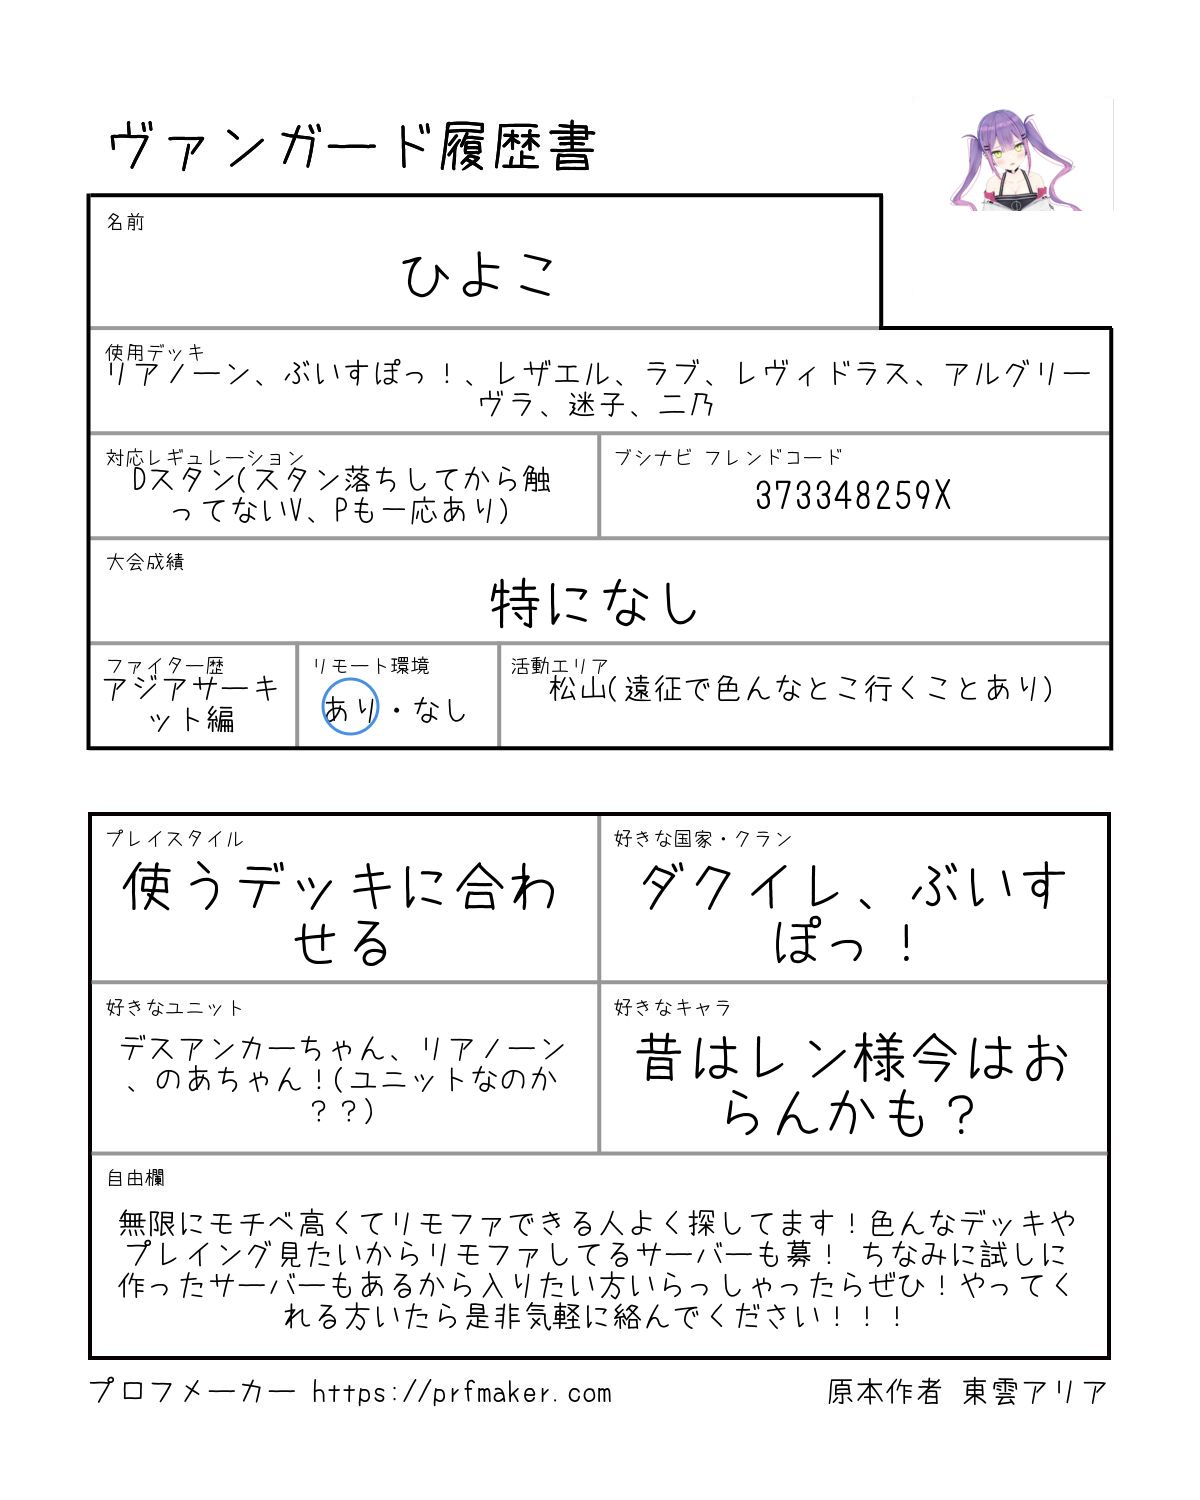 ヴァンガード履歴書
名前
ひよこ
使用デッキ
リアノーン、ぶいすぽっ！、レザエル、ラブ、レヴィドラス、アルグリー
ヴラ、迷子、二乃
対応レギュレーション
Dスタン(スタン落ちしてから触
ってないV、Pも一応あり)
ブシナビ フレンドコード
373348259X
大会成績
特になし
ファイター歴
アジアサーキ
ット編
リモート環境
あり・なし
活動エリア
松山(遠征で色んなとこ行くことあり)
プレイスタイル
使うデッキに合わ
せる
好きな国家・クラン
ダクイレ、ぶいす
ぽっ！
好きなユニット
デスアンカーちゃん、リアノーン
、のあちゃん！(ユニットなのか
？？)
好きなキャラ
昔はレン様今はお
らんかも？
自由欄
無限にモチベ高くてリモファできる人よく探してます！色んなデッキや
プレイング見たいからリモファしてるサーバーも募！ ちなみに試しに
作ったサーバーもあるから入りたい方いらっしゃったらぜひ！やってく
れる方いたら是非気軽に絡んでください！！！
プロフメーカー https://prfmaker.com
原本作者 東雲アリア